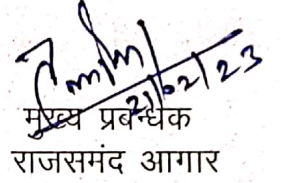 21/02/23
मुख्य प्रबन्धक
राजसमंद आगार